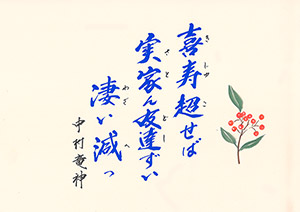 喜寿超せば
実家ん友達ずい
凄い減っ
中村竜神